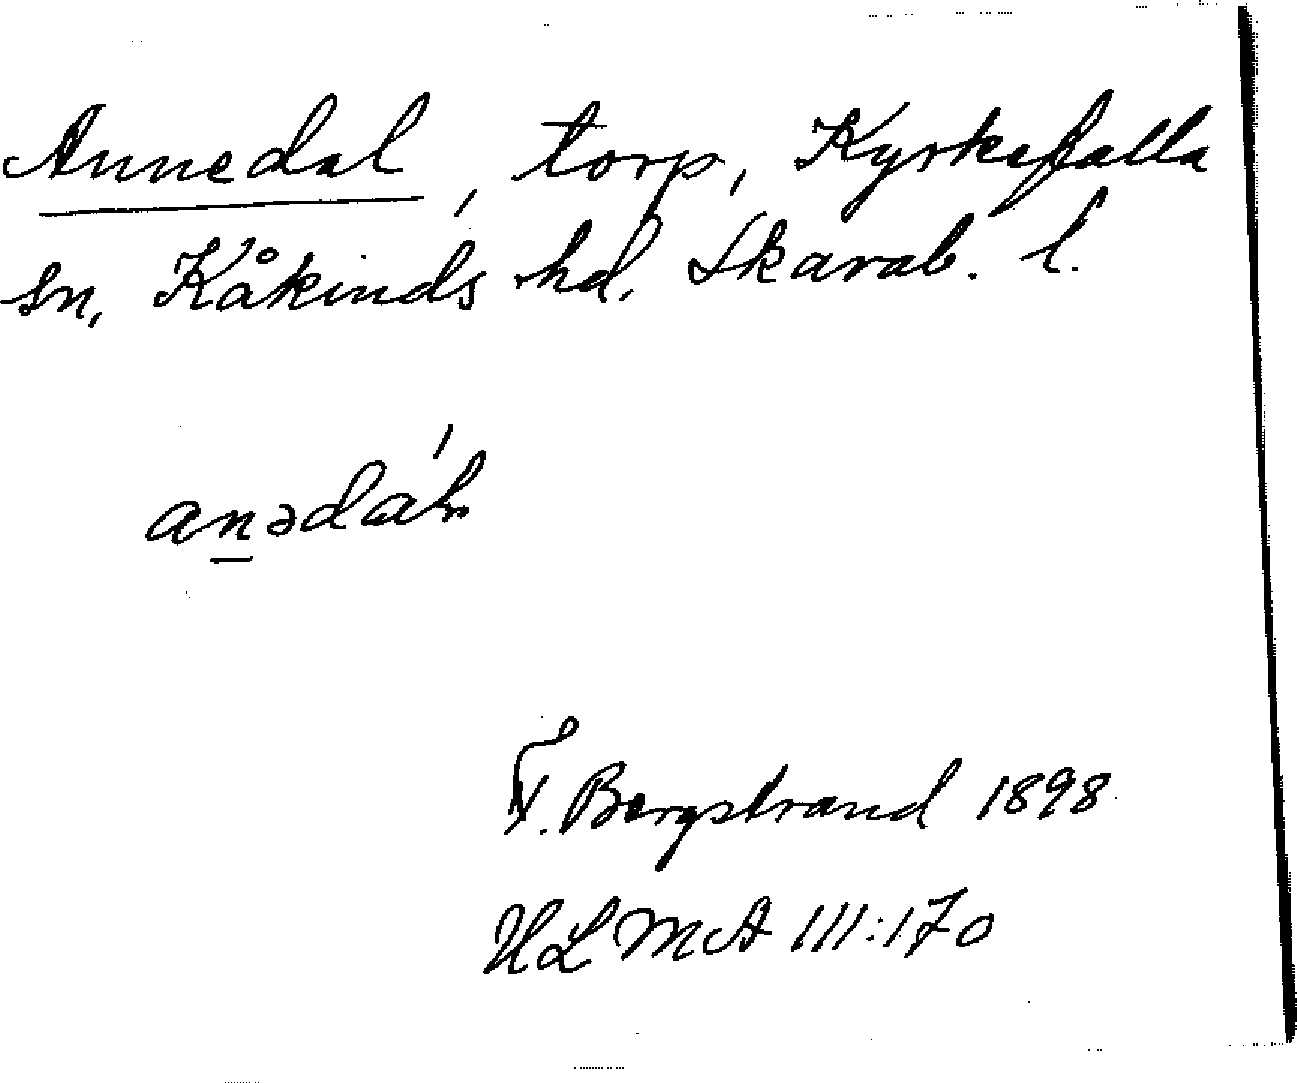 Annedal, torp, Kyrkefalla
sn, Kåkinds hd. Skarab. l.
anədál
F. Bergstrand 1898
ULMA 111:170